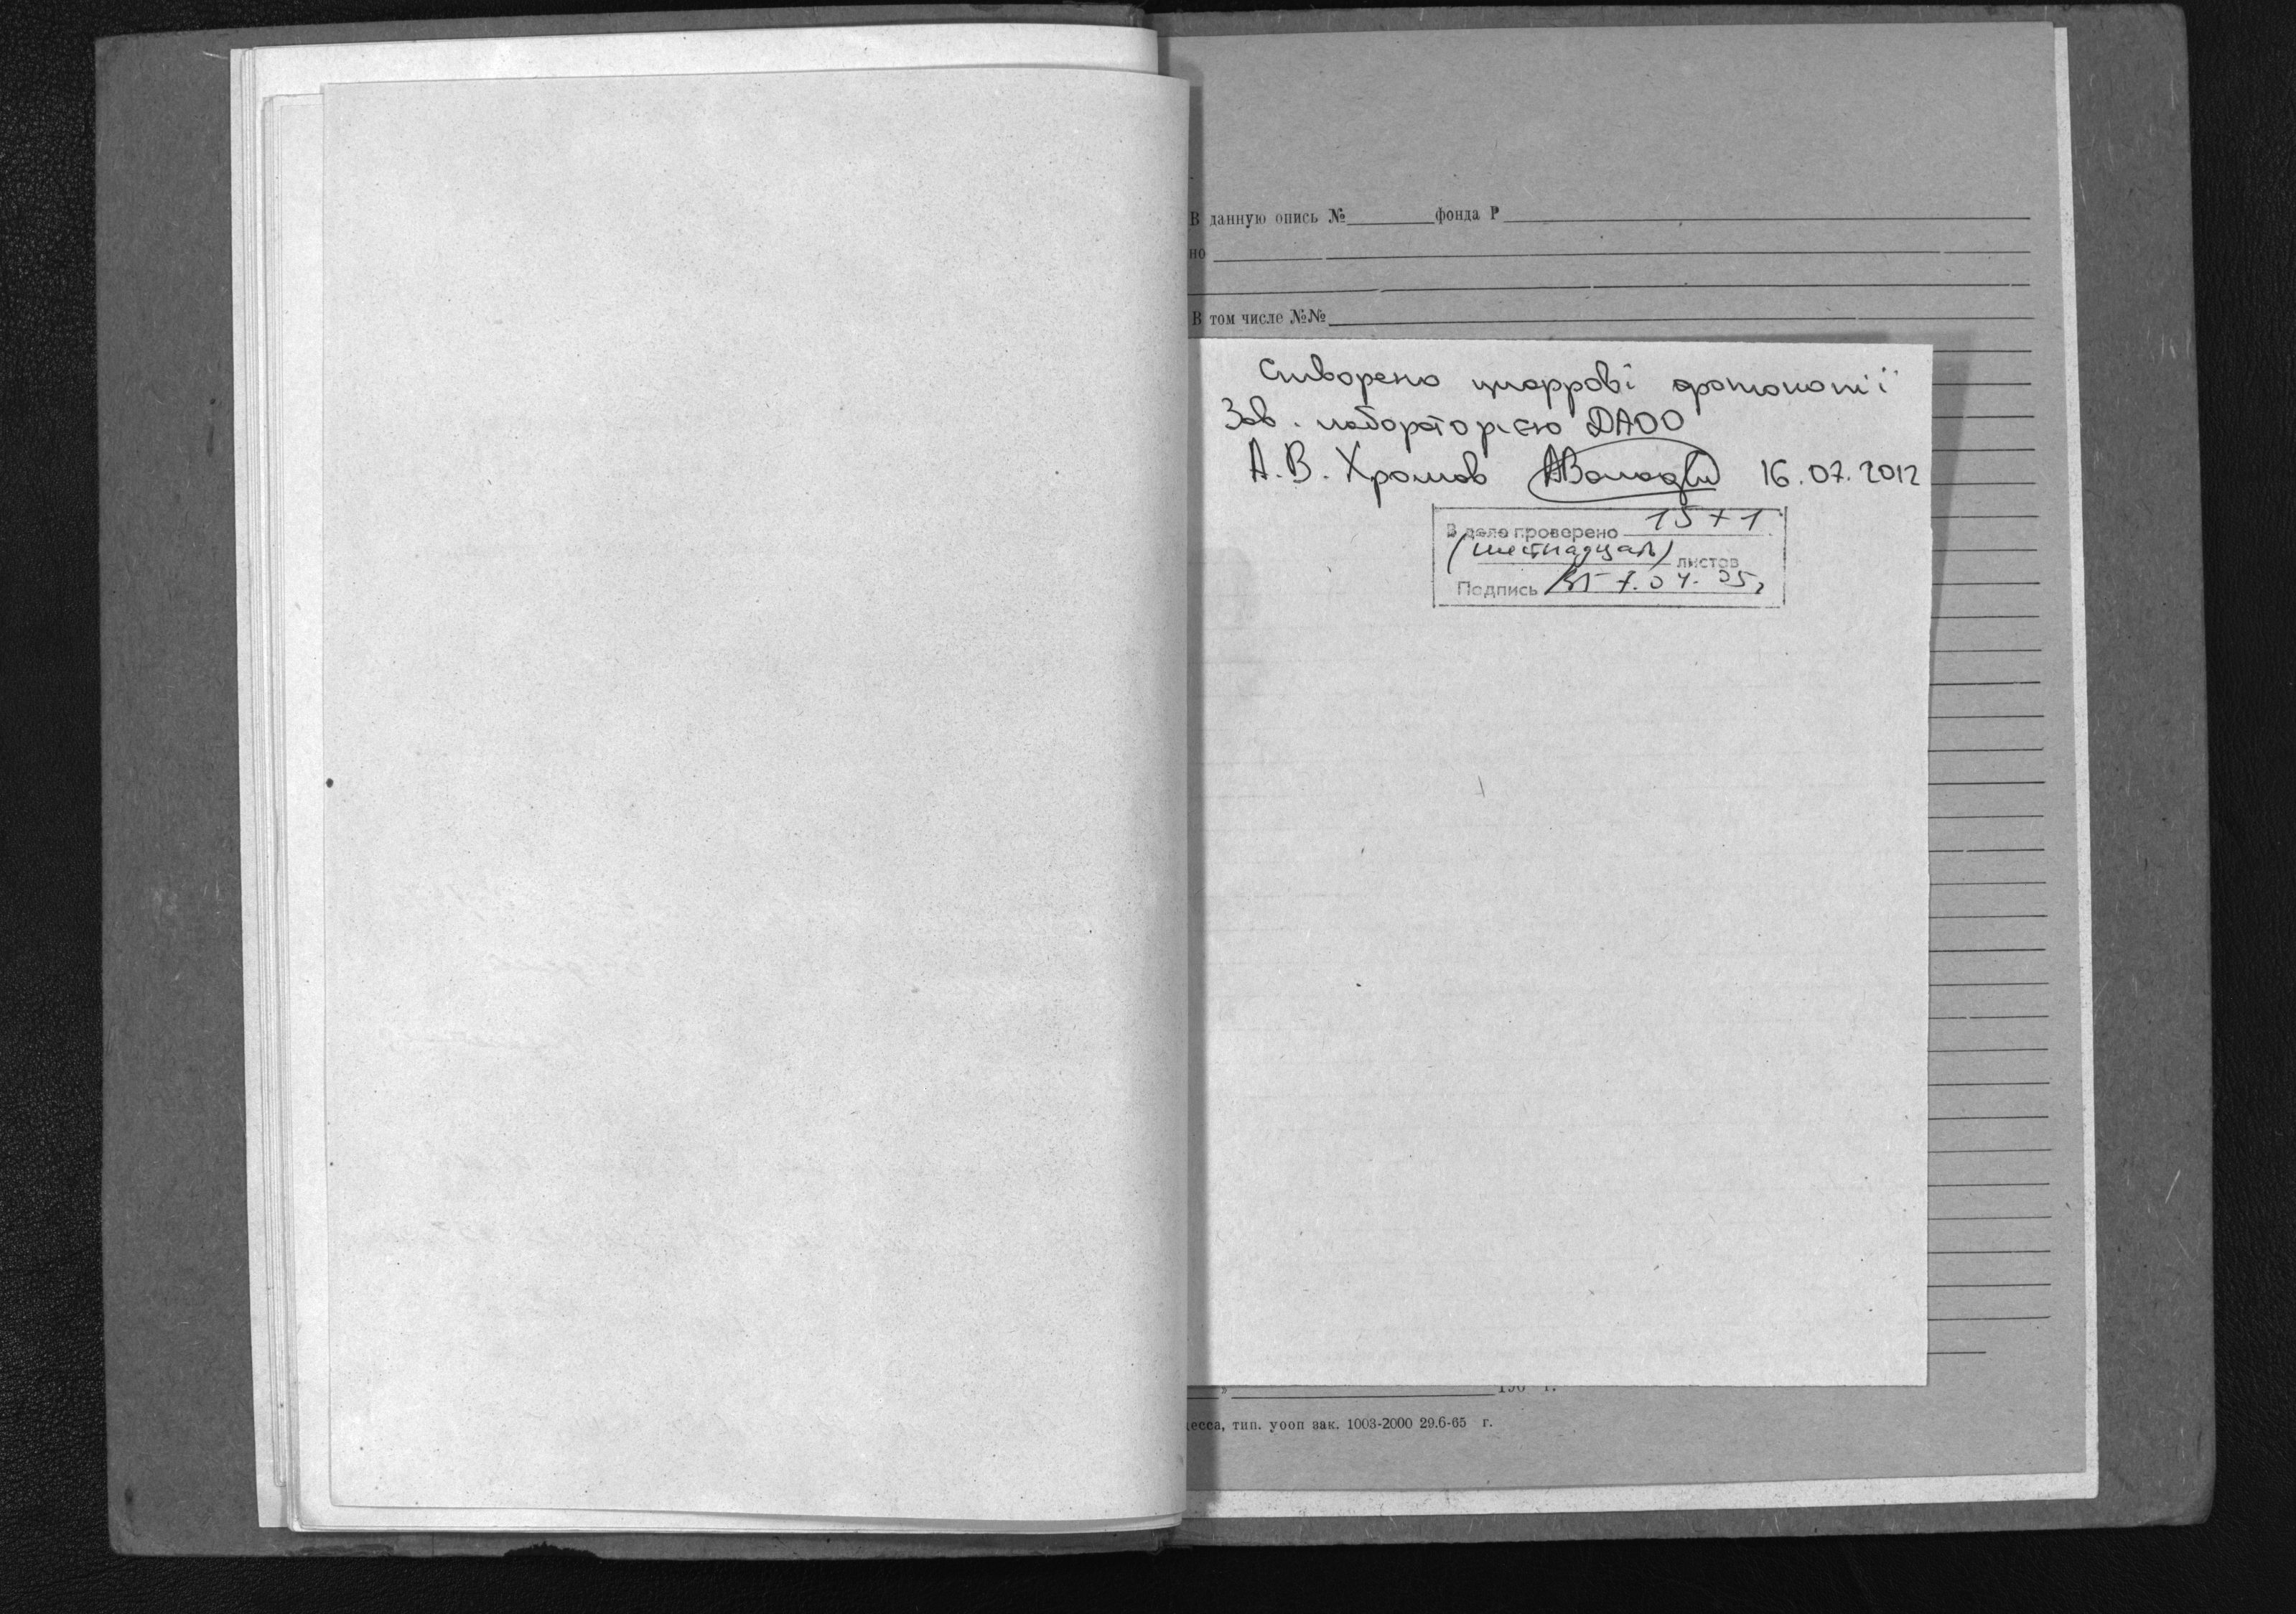 В данную опись № фонда Р
но
В том числе №№
Створено цифрові фотокопії
Зав. лабораторією ДАОО
А.В. Хромов 16.07.2012
В деле проверено 15+1
(шестнадцать) листов
Подпись 7.04.05г
» 196 г.
десса, тип. уооп зак. 1003-2000 29.6-65 г.